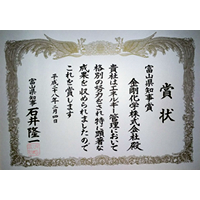 賞状
富山県知事賞
金剛化学株式会社殿
貴社はエネルギー管理において
格別の努力をされ特に顕著な
成果を収められましたので
これを賞します
平成二十八年二月四日
富山県知事 石井隆一